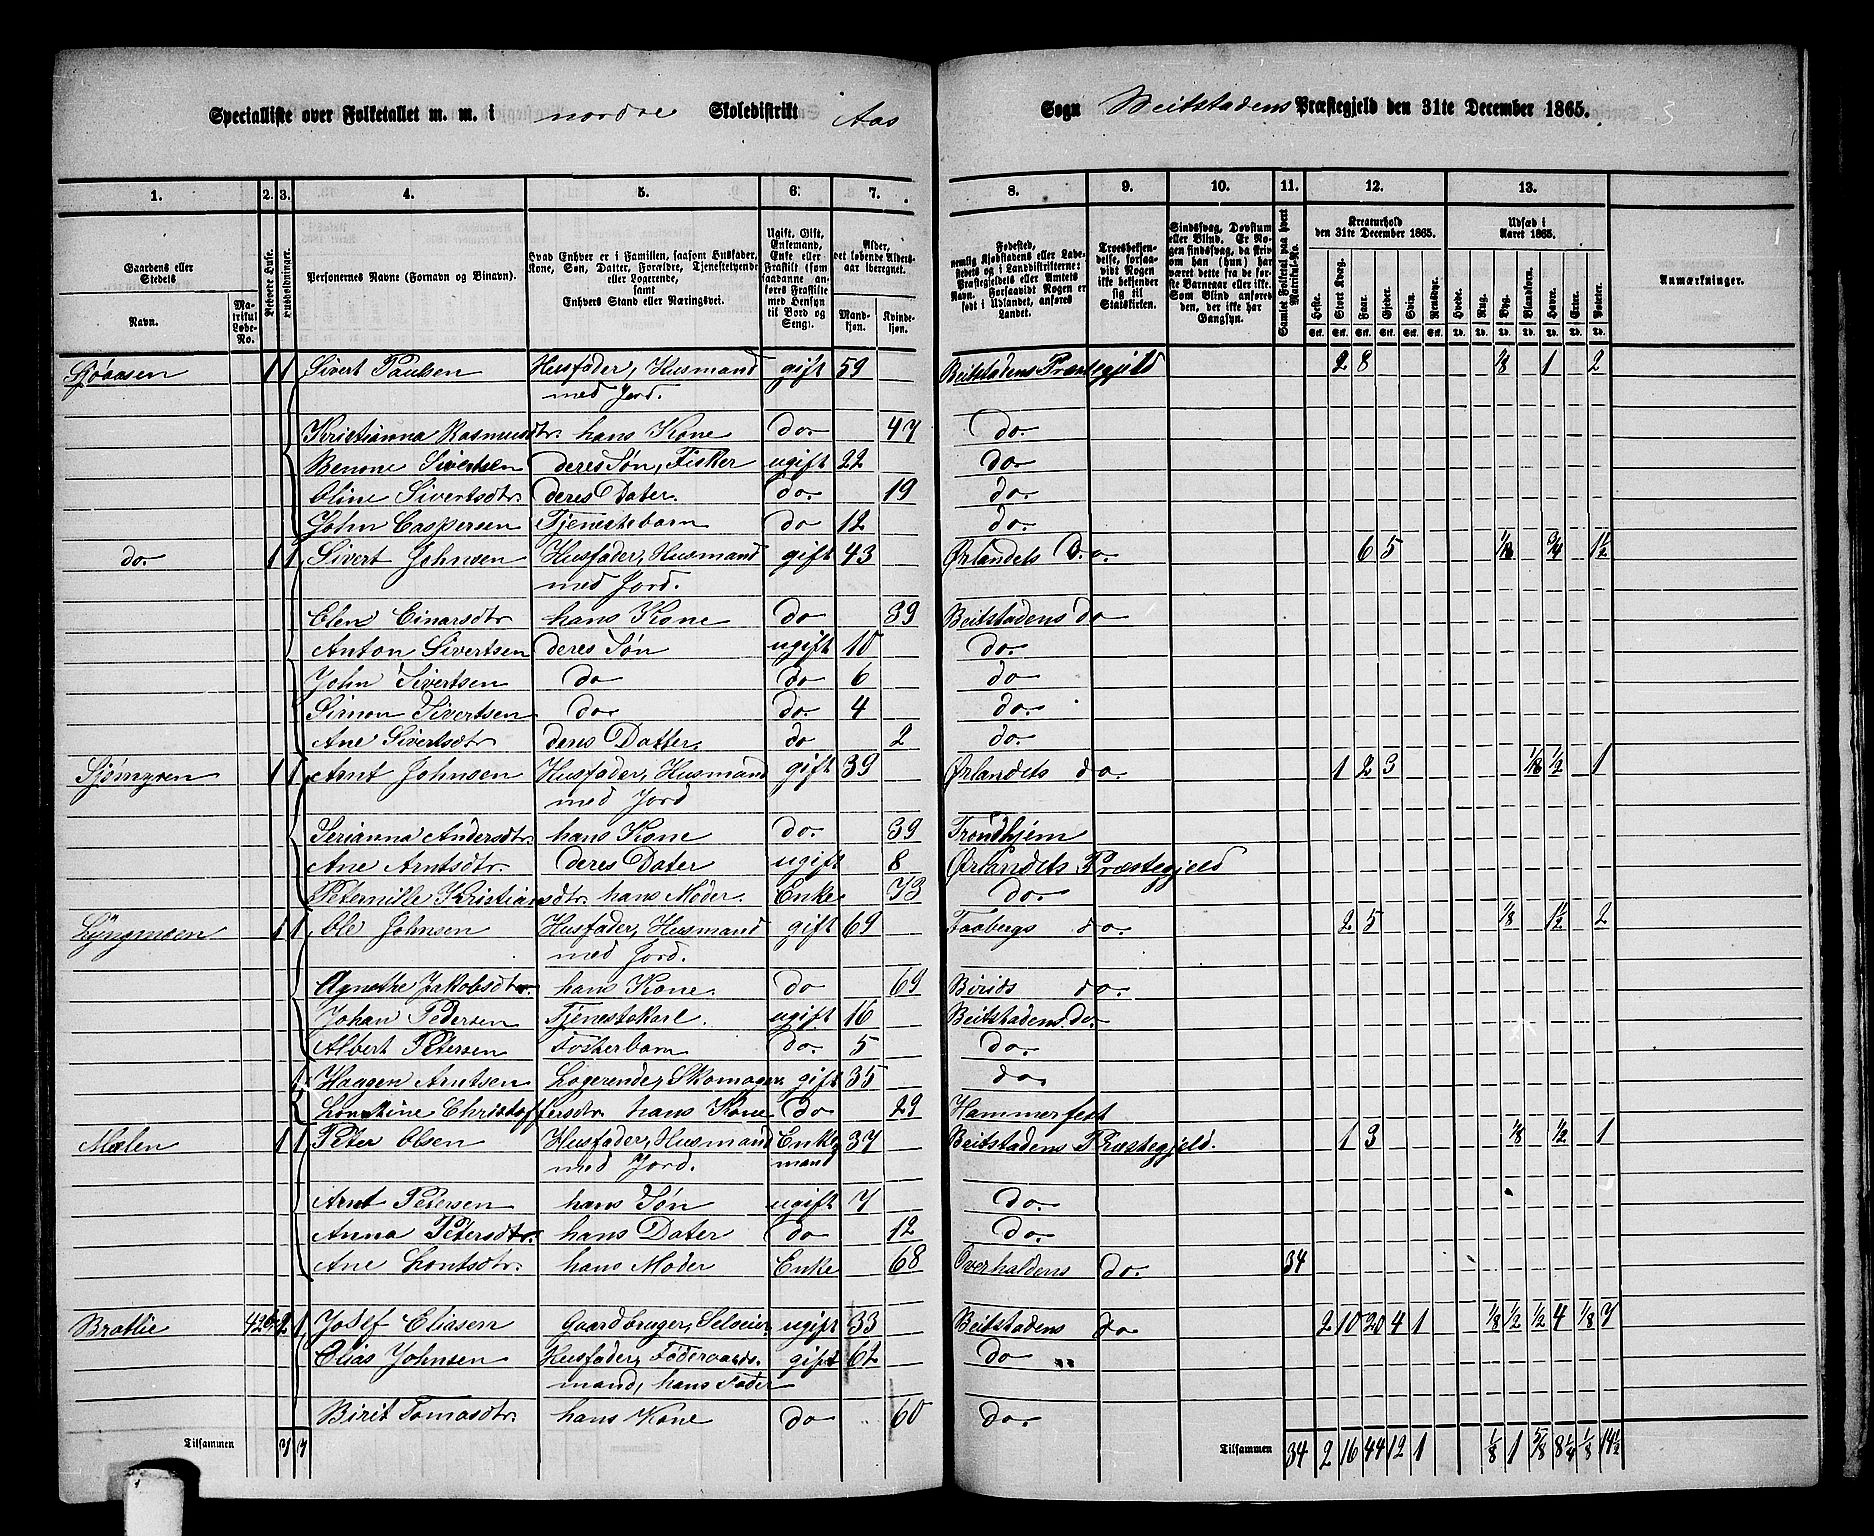 Specialliste over Folketallet m. m. i nordre Skoledistrikt Aas Sogn Beitstadens Præstegjeld den 31te December 1865.
1. 2. 3. 4. 5. 6. 7. 8. 9. 10. 11. 12. 13.
Gaardens eller Stedets
Navn.
Matrikul Løbe-No.
Beboede Huse.
Husholdninger.
Personernes Navne (Fornavn og Binavn).
Hvad Enhver er i Familien, saasom Husfader, Kone, Søn, Datter, Forældre, Tjenestetyende eller Logerende, samt Enhvers Stand eller Næringsvei.
Ugift, Gift, Enkemand, Enke eller Fraskilt (som saadanne anføres Fraskilte med Hensyn til Bord og Seng).
Alder, det løbende Alders-aar iberegnet.
Mandkjøn. Kvindekjøn.
Fødested, nemlig Kjøbstadens eller Ladestedets og i Landdistrikterne: Præstegjeldets eller Amtets Navn. Forsaavidt Nogen er født i Udlandet, anføres Landet.
Troesbekjendelse, forsaavidt Nogen ikke bekjender sig til Statskirken.
Sindssvag, Døvstum eller Blind. Er Nogen sindssvag, da Bør om han (hun) har været dette fra de første Barneaar eller ikke. Som Blind anføres den, der ikke har Gangsyn.
Samlet Folketal paa hvert Matrikul-No.
Kreaturhold den 31te December 1865.
Heste. Stort Kvæg. Faar. Gjeder. Svin. Rensdyr.
Udsæd i Aaret 1865.
Hvede. Rug. Byg. Blandkorn. Havre. Erter. Poteter.
Anmærkninger.
Sjøaasen 1 1 Sivert Paulsen Husfader, Husmand gift 59 Beitstadens Præstegjeld 2 8 1/8 1 2
med Jord.
Kristianna Rasmusdtr. hans Kone do. 47 do.
Benone Sivertsen deres Søn, Fisker ugift 22 do.
Oline Sivertsdtr. deres Dater. do. 19 do.
John Caspersen Tjenestebarn do 12 do.
do. 1 1 Sivert Johnsen Husfader, Husmand gift 43 Ørlandets do. 6 5 1/8 3/4 1 1/2
med Jord.
Elen Einarsdtr hans Kone do 39 Beitstadens do
Anton Sivertsen deres Søn ugift 10 do.
John Sivertsen do do 6 do
Simon Sivertsen do. do. 4 do.
Ane Sivertsdtr deres Datter. do 2 do.
Sjømyren 1 1 Arnt Johnsen Husfader, Husmand gift 39 Ørlandets do. 1 2 3 1/8 1/2 1
med Jord
Serianna Andersdtr. hans Kone do. 39 Trondhjem
Ane Arntsdtr. deres Dater ugift 8 Ørlandets Præstegjeld
Peternille Kristiansdtr. hans Moder. Enke 73 do.
Lyngmoen 1 1 Ole Johnsen Husfader, Husmand gift 69 Faabergs do. 2 5 1/8 1 1/2 2
med Jord.
Agnethe Jakobsdtr. hans Kone. do 69 Birids do.
Johan Pedersen Tjenestekarl. ugift 16 Beitstadens do.
Albert Petersen Fosterbarn do. 5 do.
Haagen Arntsen Logerende, Skomager gift 35 do
Lorntine Christoffersdtr. hans Kone do 29 Hammerfest
Mælen 1 1 Peter Olsen Husfader, Husmand Enke 37 Beitstadens Præstegjeld. 1 3 1/8 1/2 1
med Jord. mand
Arnt Petersen hans Søn ugift 7 do.
Anna Petersdtr. hans Dater do 12 do.
Ane Lorntsdtr. hans Moder Enke 68 Overhaldens do. 34
Bratlie 42 2 1 Josef Eliasen Gaardbruger, Selveier ugift 33 Beitstadens do 2 10 20 4 1 1/8 1/2 1/2 4 1/8 7
Elias Johnsen Husfader, Føderaads- gift 62 do
mand, hans Fader
Birit Tomasdtr. hans Kone do 60 do.
Tilsammen 7 7 Tilsammen 34 2 16 44 12 1 1/8 1 5/8 8 1/4 1/8 14 1/2